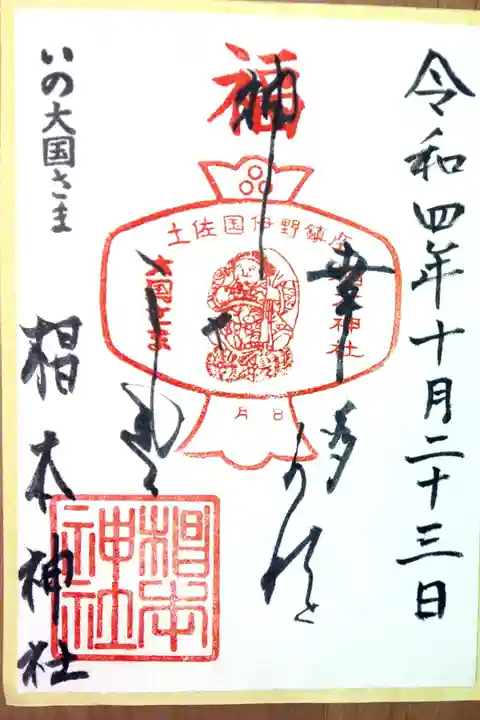 令和四年十月二十三日
福
土佐国伊野鎮座
神社
大国さま
月 日
幸多かれと
いの大国さま
椙本神社
椙本神社